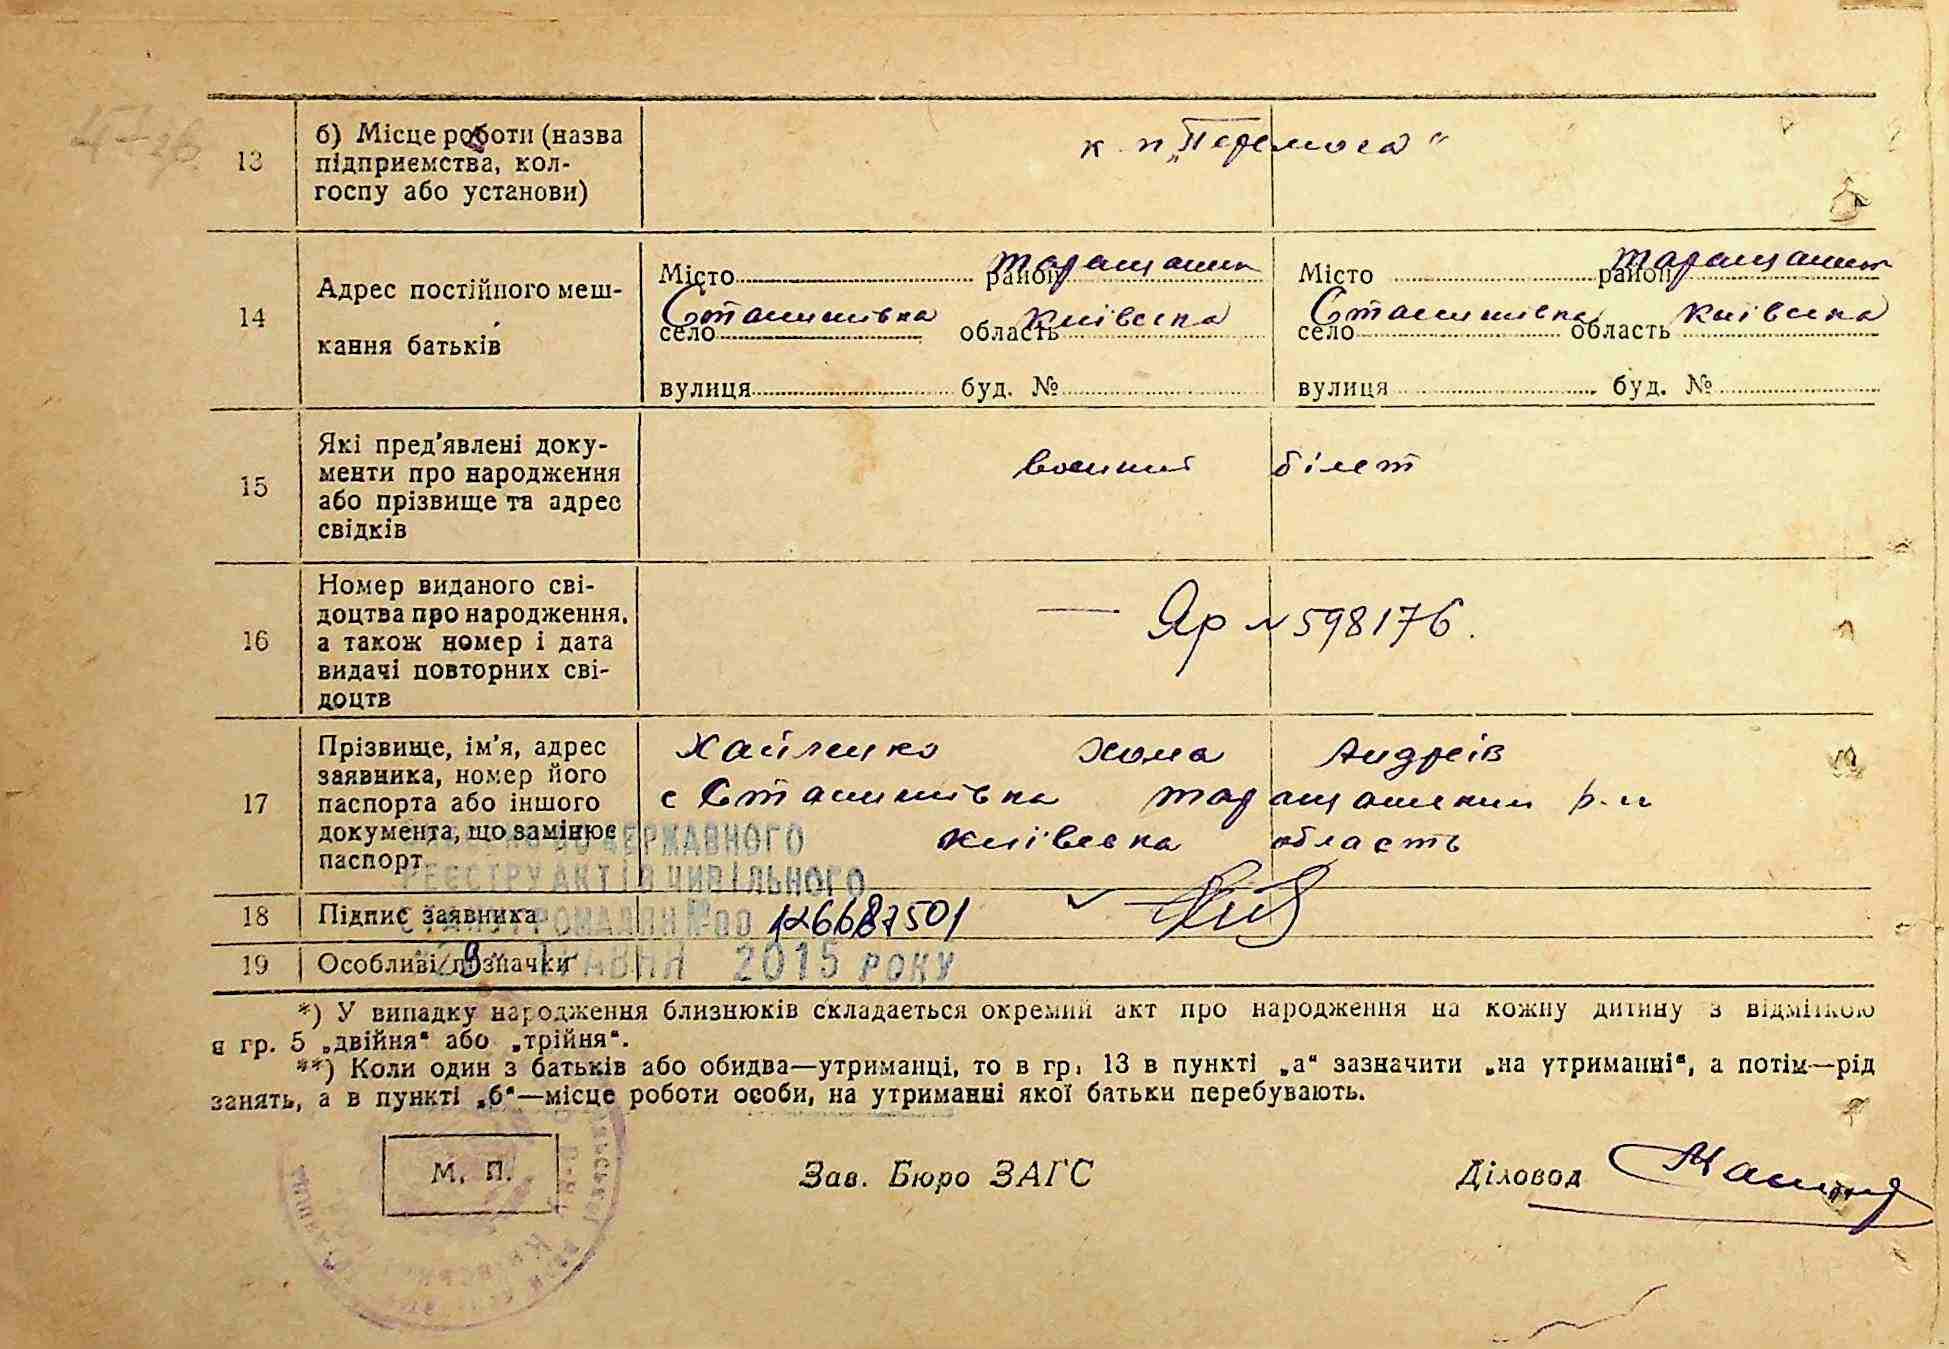 13
б) Місце роботи (назва
підприємства, кол-
госпу або установи)
к п „Перемога“
14
Адрес постійного меш-
кання батьків
Місто район Таращанськ
село Станишівка область Київська
вулиця буд. №
Місто район Таращанськ
село Станишівка область Київська
вулиця буд. №
15
Які пред'явлені доку-
менти про народження
або прізвище та адрес
свідків
воєнний білет
16
Номер виданого сві-
доцтва про народження,
а також номер і дата
видачі повторних сві-
доцтв
— Яр № 598176.
17
Прізвище, ім'я, адрес
заявника, номер його
паспорта або іншого
документа, що замінює
паспорт
Хайленко Хома Андреів
с Станишівка Таращанський р-н
Київська область
ДО ДЕРЖАВНОГО
РЕЄСТРУ АКТІВ ЦИВІЛЬНОГО
18
Підпис заявника
СТАНУ ГРОМАДЯН №00 126687501
19
Особливі позначки
"29" ТРАВНЯ 2015 РОКУ
*) У випадку народження близнюків складається окремий акт про народження на кожну дитину з відміткою
в гр. 5 „двійня“ або „трійня“.
**) Коли один з батьків або обидва—утриманці, то в гр. 13 в пункті „а“ зазначити „на утриманні“, а потім—рід
занять, а в пункті „б“—місце роботи особи, на утриманні якої батьки перебувають.
М. П.
Зав. Бюро ЗАГС
Діловод